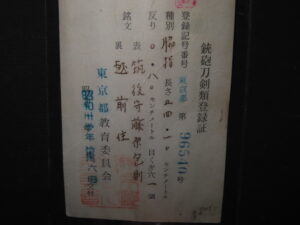 銃砲刀剣類登録証
登録記号番号 東京都 第 96540号
種別 脇指
長さ 五四・一センチメートル
反り 〇・八〇センチメートル
目くぎ穴 一個
銘文 表 筑後守藤原包則
裏 越前住
東京都教育委員会